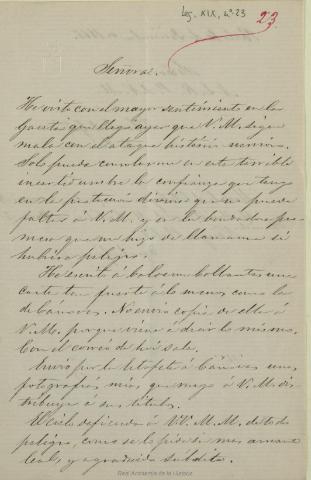 Leg. XIX, nº 23
23.
Señora:
He visto con el mayor sentimiento en la
Gaceta que llegó ayer que V. M. sigue
mala con el ataque
Solo puede consolarme en este terrible
incertidumbre la confianza que tengo
en la providencia divina que no puede
faltar á V. M. y en la bondadosa pro-
mesa que me hizo de llamarme si
hubiera peligro.
He escrito á Collantes una
carta tan fuerte ó lo menos como la
de Cánovas. No envio copia de ella á
V. M. porque viene á decir lo mismo.
Con el correo de hoy sale.
Envio por la estafeta á Cánovas unas
fotografias mias, que ruego á V. M. dis-
tribuya á sus
El cielo defienda á VV. M. M. de todo
peligro, como se lo pide su mas amante
leal, y agradecida subdita.
Real Academia de la Historia